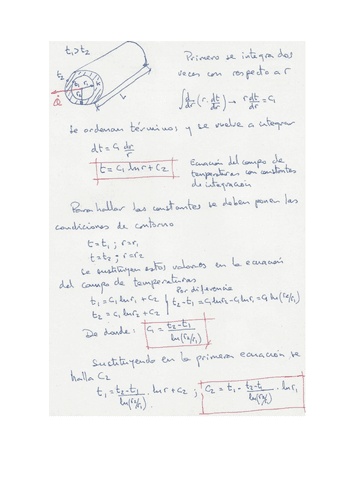 t₁>t₂
Primero se integra dos
veces con respecto a r
t₂
t₁
r₁
Q̇
L
∫ d/dr (r. dt/dr) → r dt/dr = C₁
Se ordenan términos y se vuelve a integrar
dt = C₁ dr/r
t = C₁ ln r + C₂
Ecuación del campo de
temperaturas con constantes
de integración
Para hallar las constantes se deben poner las
condiciones de contorno
t = t₁ ; r = r₁
t = t₂ ; r = r₂
se sustituyen estos valores en la ecuación
del campo de temperaturas
Por diferencia
t₁ = C₁ ln r₁ + C₂
t₂ = C₁ ln r₂ + C₂
t₂-t₁ = C₁ ln r₂ - C₁ ln r₁ = C₁ ln (r₂/r₁)
De donde: C₁ = t₂-t₁ / ln(r₂/r₁)
Sustituyendo en la primera ecuación se
halla C₂
t₁ = t₂-t₁ / ln(r₂/r₁) . ln r + C₂ ; C₂ = t₁ - t₂-t₁ / ln(r₂/r₁) . ln r₁